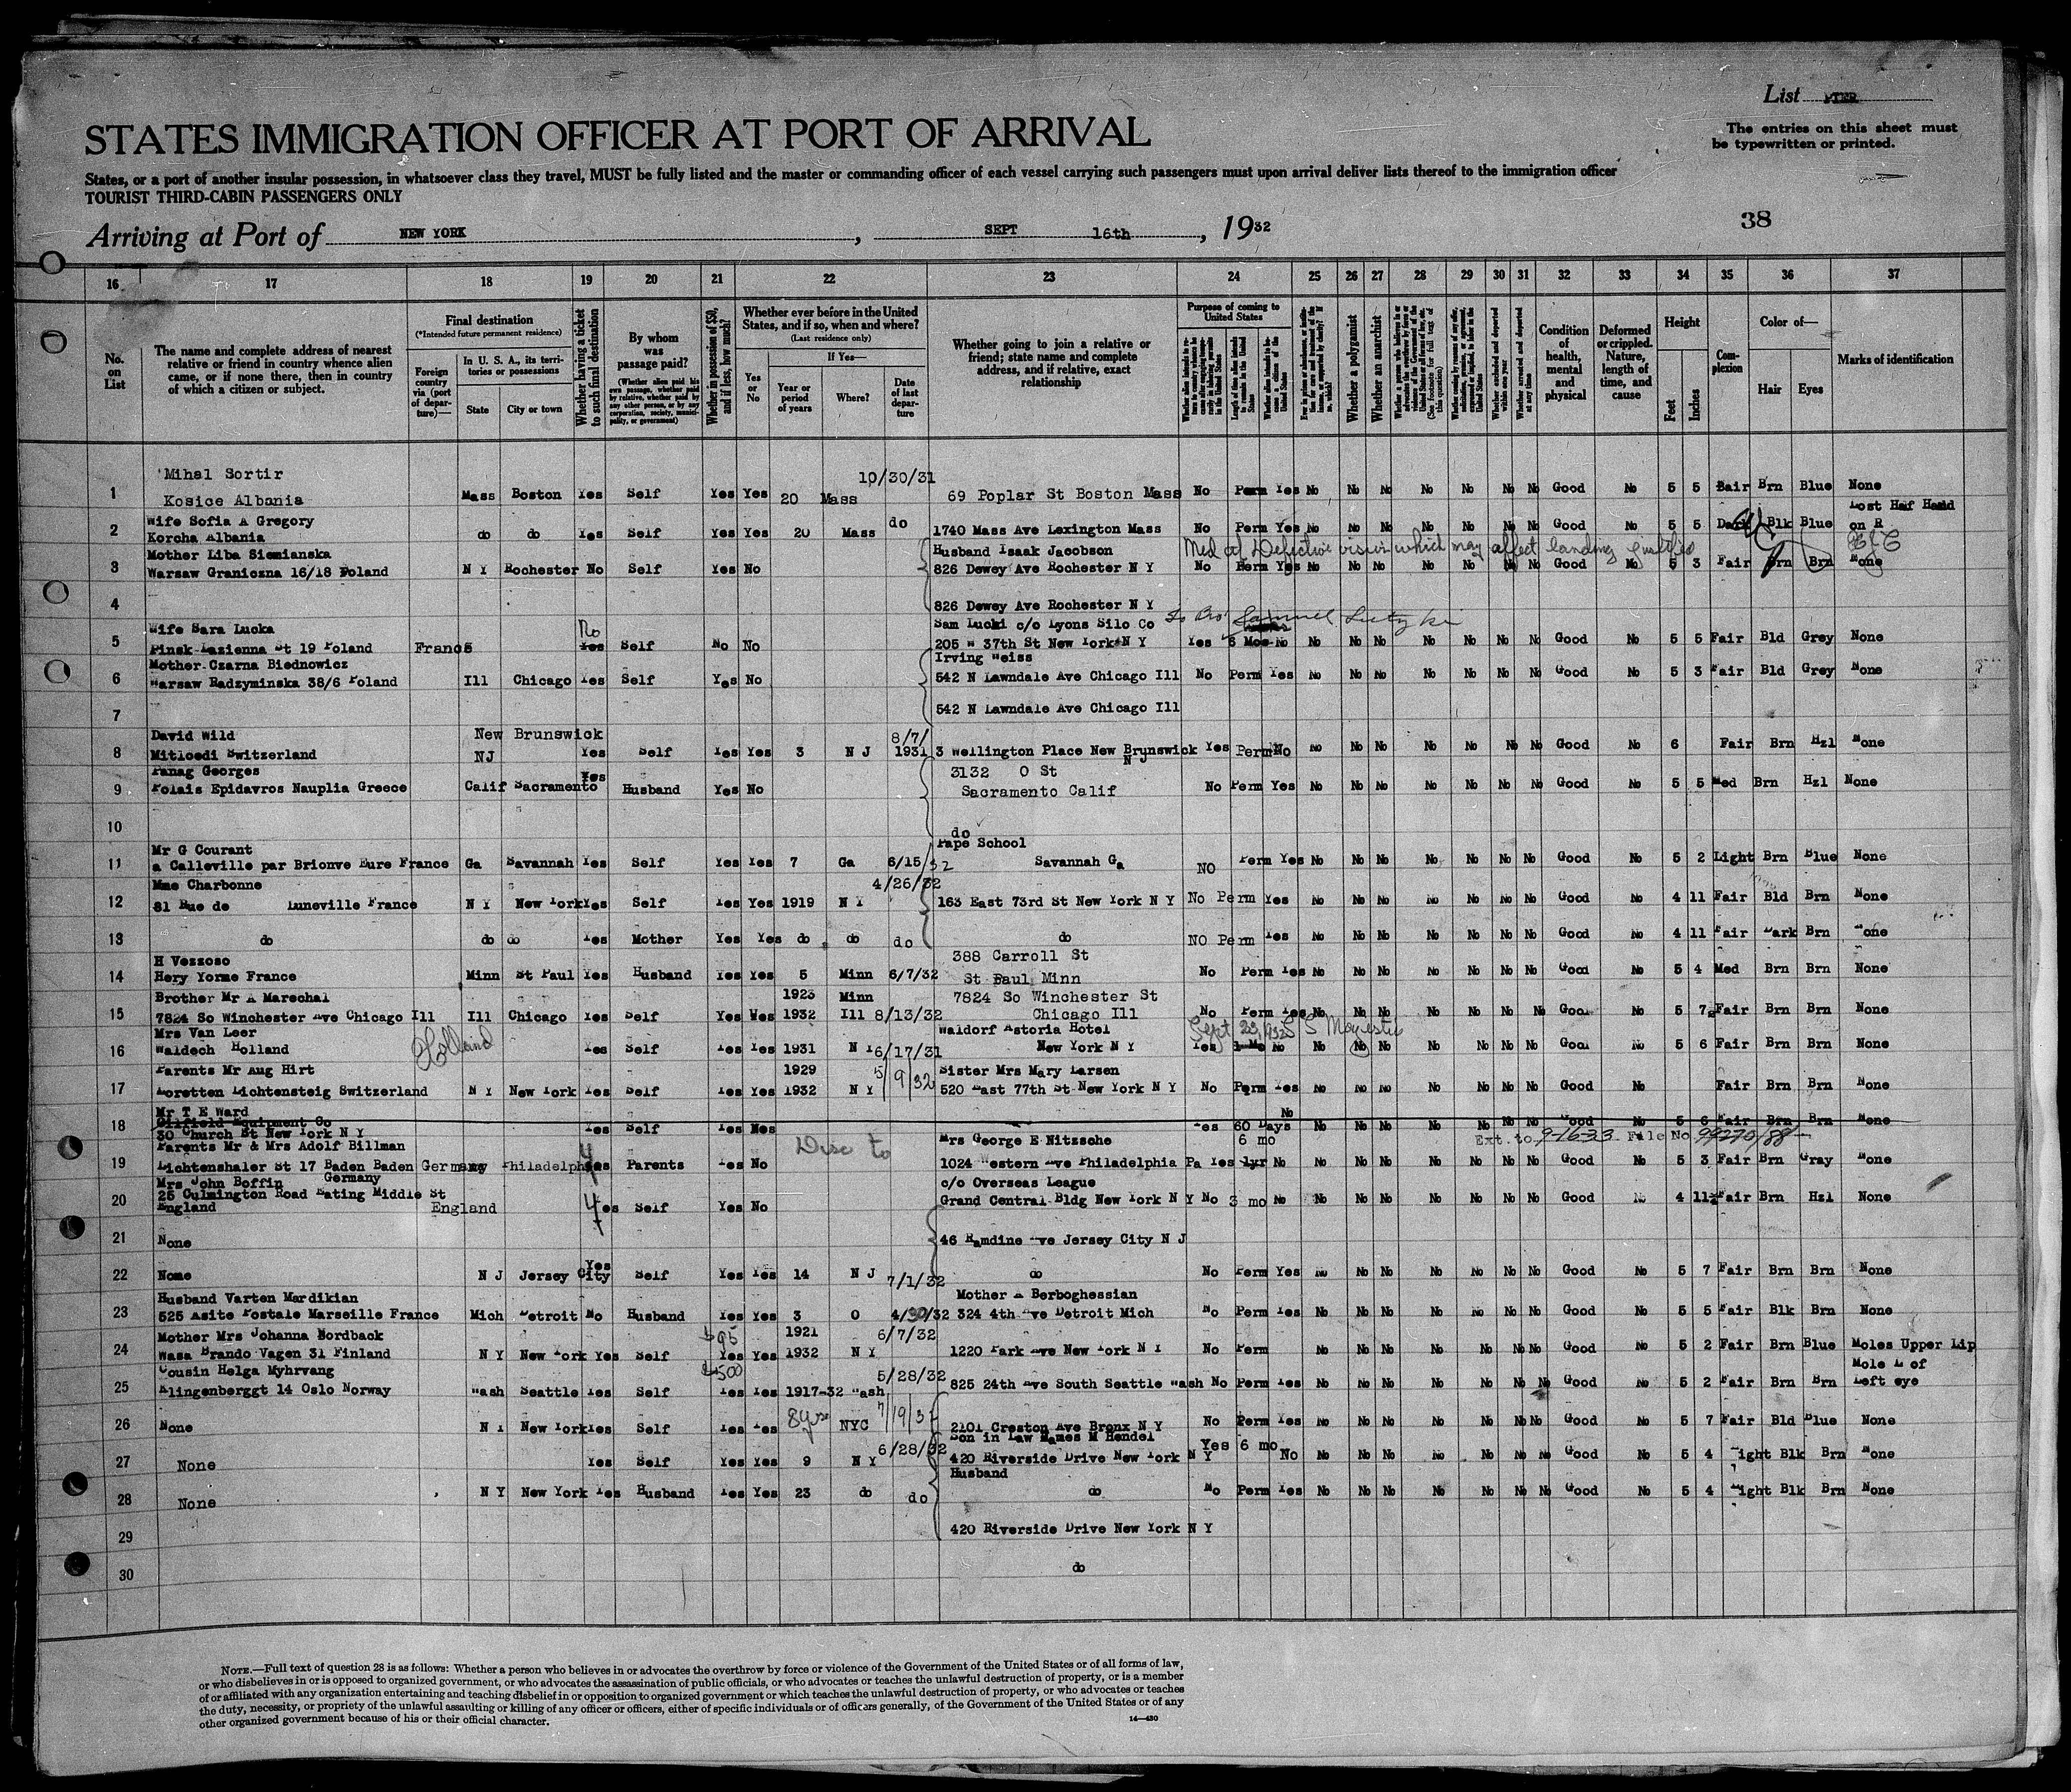 List
The entries on this sheet must
be typewritten or printed.
STATES IMMIGRATION OFFICER AT PORT OF ARRIVAL
States, or a port of another insular possession, in whatsoever class they travel, MUST be fully listed and the master or commanding officer of each vessel carrying such passengers must upon arrival deliver lists thereof to the immigration officer
TOURIST THIRD-CABIN PASSENGERS ONLY
38
Arriving at Port of NEW YORK, SEPT 16th, 1932
16 17 18 19 20 21 22 23 24 25 26 27 28 29 30 31 32 33 34 35 36 37
No. on List
The name and complete address of nearest relative or friend in country whence alien came, or if none there, then in country of which a citizen or subject.
Final destination
(*Intended future permanent residence)
Foreign country via (port of departure)—
In U. S. A., its territories or possessions
State
City or town
Whether having a ticket to such final destination
By whom was passage paid?
(Whether alien paid his own passage, whether paid by relative, whether paid by any other person, or by any corporation, society, municipality, or government)
Whether in possession of $50, and if less, how much?
Whether ever before in the United States, and if so, when and where?
(Last residence only)
Yes or No
If Yes—
Year or period of years
Where?
Date of last departure
Whether going to join a relative or friend; state name and complete address, and if relative, exact relationship
Purpose of coming to United States
Whether a polygamist
Whether an anarchist
Whether excluded and deported within one year
Whether arrested and deported at any time
Condition of health, mental and physical
Deformed or crippled. Nature, length of time, and cause
Height
Feet
Inches
Complexion
Color of—
Hair
Eyes
Marks of identification
Mihal Sortir 10/30/31
1 Kosice Albania Mass Boston Yes Self Yes Yes 20 Mass 69 Poplar St Boston Mass No Perm Yes No No No No No No No Good No 5 5 Fair Brn Blue None
Wife Sofia A Gregory do Lost Half Hand
2 Korcha Albania do do Yes Self Yes Yes 20 Mass 1740 Mass Ave Lexington Mass No Perm Yes No No No No No No No Good No 5 5 Dark Blk Blue on R
Mother Liba Siemianska Husband Isaak Jacobson Med cf Defective vision which may affect landing
3 Warsaw Graniczna 16/18 Poland N Y Rochester No Self Yes No 826 Dewey Ave Rochester N Y No Perm Yes No No No No No No No Good No 5 3 Fair Brn Brn None
4 826 Dewey Ave Rochester N Y
Wife Sara Lucka No Sam Lucki c/o Lyons Silo Co
5 Pinsk Lazienna St 19 Poland France Yes Self No No 205 W 37th St New York N Y Yes 6 Mos No No No No No No No No Good No 5 5 Fair Bld Grey None
Mother Czarna Biednowicz Irving Weiss
6 Warsaw Radzyminska 38/6 Poland Ill Chicago Yes Self Yes No 542 N Lawndale Ave Chicago Ill No Perm Yes No No No No No No No Good No 5 3 Fair Bld Grey None
7 542 N Lawndale Ave Chicago Ill
David Wild New Brunswick 8/7/
8 Mitloedi Switzerland NJ Yes Self Yes Yes 3 N J 1931 3 Wellington Place New Brunswick N J Yes Perm No No No No No No No No Good No 6 Fair Brn Hzl None
Panag Georges Yes 3132 O St
9 Polais Epidavros Nauplia Greece Calif Sacramento Husband Yes No Sacramento Calif No Perm Yes No No No No No No No Good No 5 5 Med Brn Hzl None
10 do
Mr G Courant Pape School
11 a Calleville par Brionve Eure France Ga Savannah Yes Self Yes Yes 7 Ga 6/15/32 Savannah Ga NO Perm Yes No No No No No No No Good No 5 2 Light Brn Blue None
Mme Charbonne 4/26/32
12 81 Rue de Luneville France N Y New York Yes Self Yes Yes 1919 N Y 163 East 73rd St New York N Y No Perm Yes No No No No No No No Good No 4 11 Fair Bld Brn None
13 do do do Yes Mother Yes Yes do do do do NO Perm Yes No No No No No No No Good No 4 11 Fair Dark Brn None
H Vezzoso 388 Carroll St
14 Hery Yorme France Minn St Paul Yes Husband Yes Yes 5 Minn 6/7/32 St Paul Minn No Perm Yes No No No No No No No Good No 5 4 Med Brn Brn None
Brother Mr A Marechal 1923 Minn 7824 So Winchester St
15 7824 So Winchester Ave Chicago Ill Ill Chicago Yes Self Yes Yes 1932 Ill 8/13/32 Chicago Ill No Perm Yes No No No No No No No Good No 5 7 Fair Brn Brn None
Mrs Van Leer Holland Waldorf Astoria Hotel Sept 23, 1932 S S Majestic
16 Waldech Holland Yes Self Yes Yes 1931 N Y 6/17/31 New York N Y Yes 1 Mo No No No No No No No No Good No 5 6 Fair Brn Brn None
Parents Mr Aug Hirt 1929 5/9/32 Sister Mrs Mary Larsen
17 Loretten Lichtensteig Switzerland N Y New York Yes Self Yes Yes 1932 N Y 520 East 77th St New York N Y No Perm Yes No No No No No No No Good No Fair Brn Brn None
Mr T E Ward No
Oilfield Equipment Co
18 30 Church St New York N Y Yes Self Yes Yes Yes 60 Days No No No No No No No Good No 5 6 Fair Brn Brn None
Parents Mr & Mrs Adolf Billman Mrs George E Nitzsche 6 mo Ext. to 9-16-33 File No 99270/88
19 Lichtenshaler St 17 Baden Baden Germany Philadelphia Yes Parents Yes No 1024 Western Ave Philadelphia Pa Yes 1yr No No No No No No No No Good No 5 3 Fair Brn Gray None
Germany
Mrs John Boffin c/o Overseas League
20 25 Culmington Road Eating Middle St Yes Self Yes No Grand Central Bldg New York N Y No 3 mo No No No No No No No No Good No 4 11½ Fair Brn Hzl None
England England
21 None 46 Ramdine Ave Jersey City N J
22 None N J Jersey City Yes Self Yes Yes 14 N J 7/1/32 do No Perm Yes No No No No No No No Good No 5 7 Fair Brn Brn None
Husband Varten Mardikian Mother A Berboghessian
23 525 Asite Postale Marseille France Mich Detroit No Husband Yes Yes 3 O 4/30/32 324 4th Ave Detroit Mich No Perm Yes No No No No No No No Good No 5 5 Fair Blk Brn None
Mother Mrs Johanna Nordback $95 1921 6/7/32
24 Wasa Brando Vagen 31 Finland N Y New York Yes Self Yes Yes 1932 N Y 1220 Park Ave New York N Y No Perm No No No No No No No Good No 5 2 Fair Brn Blue Moles Upper Lip
Cousin Helga Myhrvang $500 5/28/32 Mole L of
25 Klingenberggt 14 Oslo Norway Wash Seattle Yes Self Yes Yes 1917-32 Wash 825 24th Ave South Seattle Wash No Perm Yes No No No No No No No Good No 5 2 Fair Brn Brn Left eye
26 None N Y New York Yes Self Yes Yes 8 yrs NYC 7/19/32 2101 Creston Ave Bronx N Y No Perm Yes No No No No No No No Good No 5 7 Fair Bld Blue None
6/28/32 Son in Law James M Hendel
27 None Yes Self Yes Yes 9 N Y 420 Riverside Drive New York N Y Yes 6 mo No No No No No No No No Good No 5 4 Light Blk Brn None
Husband
28 None N Y New York Yes Husband Yes Yes 23 do do do No Perm Yes No No No No No No No Good No 5 4 Light Blk Brn None
29 420 Riverside Drive New York N Y
30 do
NOTE.—Full text of question 28 is as follows: Whether a person who believes in or advocates the overthrow by force or violence of the Government of the United States or of all forms of law,
or who disbelieves in or is opposed to organized government, or who advocates the assassination of public officials, or who advocates or teaches the unlawful destruction of property, or is a member
of or affiliated with any organization entertaining and teaching disbelief in or opposition to organized government or which teaches the unlawful destruction of property, or who advocates or teaches
the duty, necessity, or propriety of the unlawful assaulting or killing of any officer or officers, either of specific individuals or of officers generally, of the Government of the United States or of any
other organized government because of his or their official character.
14—430